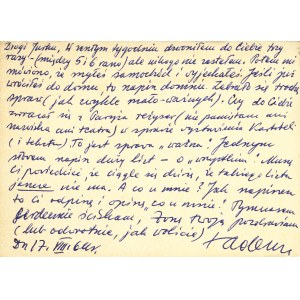 Drogi Justku, W zeszłym tygodniu dzwoniłem do Ciebie trzy
razy - (między 5 i 6 rano) ale nikogo nie zastałem. Potem mi
mówiono, że myłeś samochód i wyjechałeś. Jeśli już
wróciłeś do domu, to napisz domine. Zebrało się trochę
spraw (jak zwykle mało-ważnych). Czy do Ciebie
zwracał się z Paryża reżyser (nie pamiętam ani
nazwiska ani teatru) w sprawie wystawienia Kartoteki
(i tekstu) To jest sprawa "ważna". Jednym
słowem napisz duży list - o "wszystkim". Muszę
Ci powiedzieć, że ciągle się dziwię, że takiego listu
jeszcze nie ma. A co u mnie? Jak napiszesz
to Ci odpiszę i opiszę, co u mnie! Tymczasem
serdecznie ściskam, Żonę Twoją pozdrawiam
(lub odwrotnie, jak wolicie)
Dn 17. VIII 64 r. Tadeusz